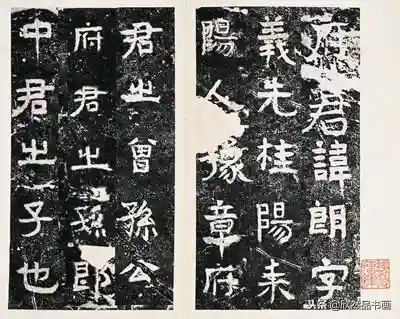 府君諱朗字
義先桂陽耒
陽人豫章府
君之曾孫公
府君之孫郎
中君之子也
头条@欣然品书画